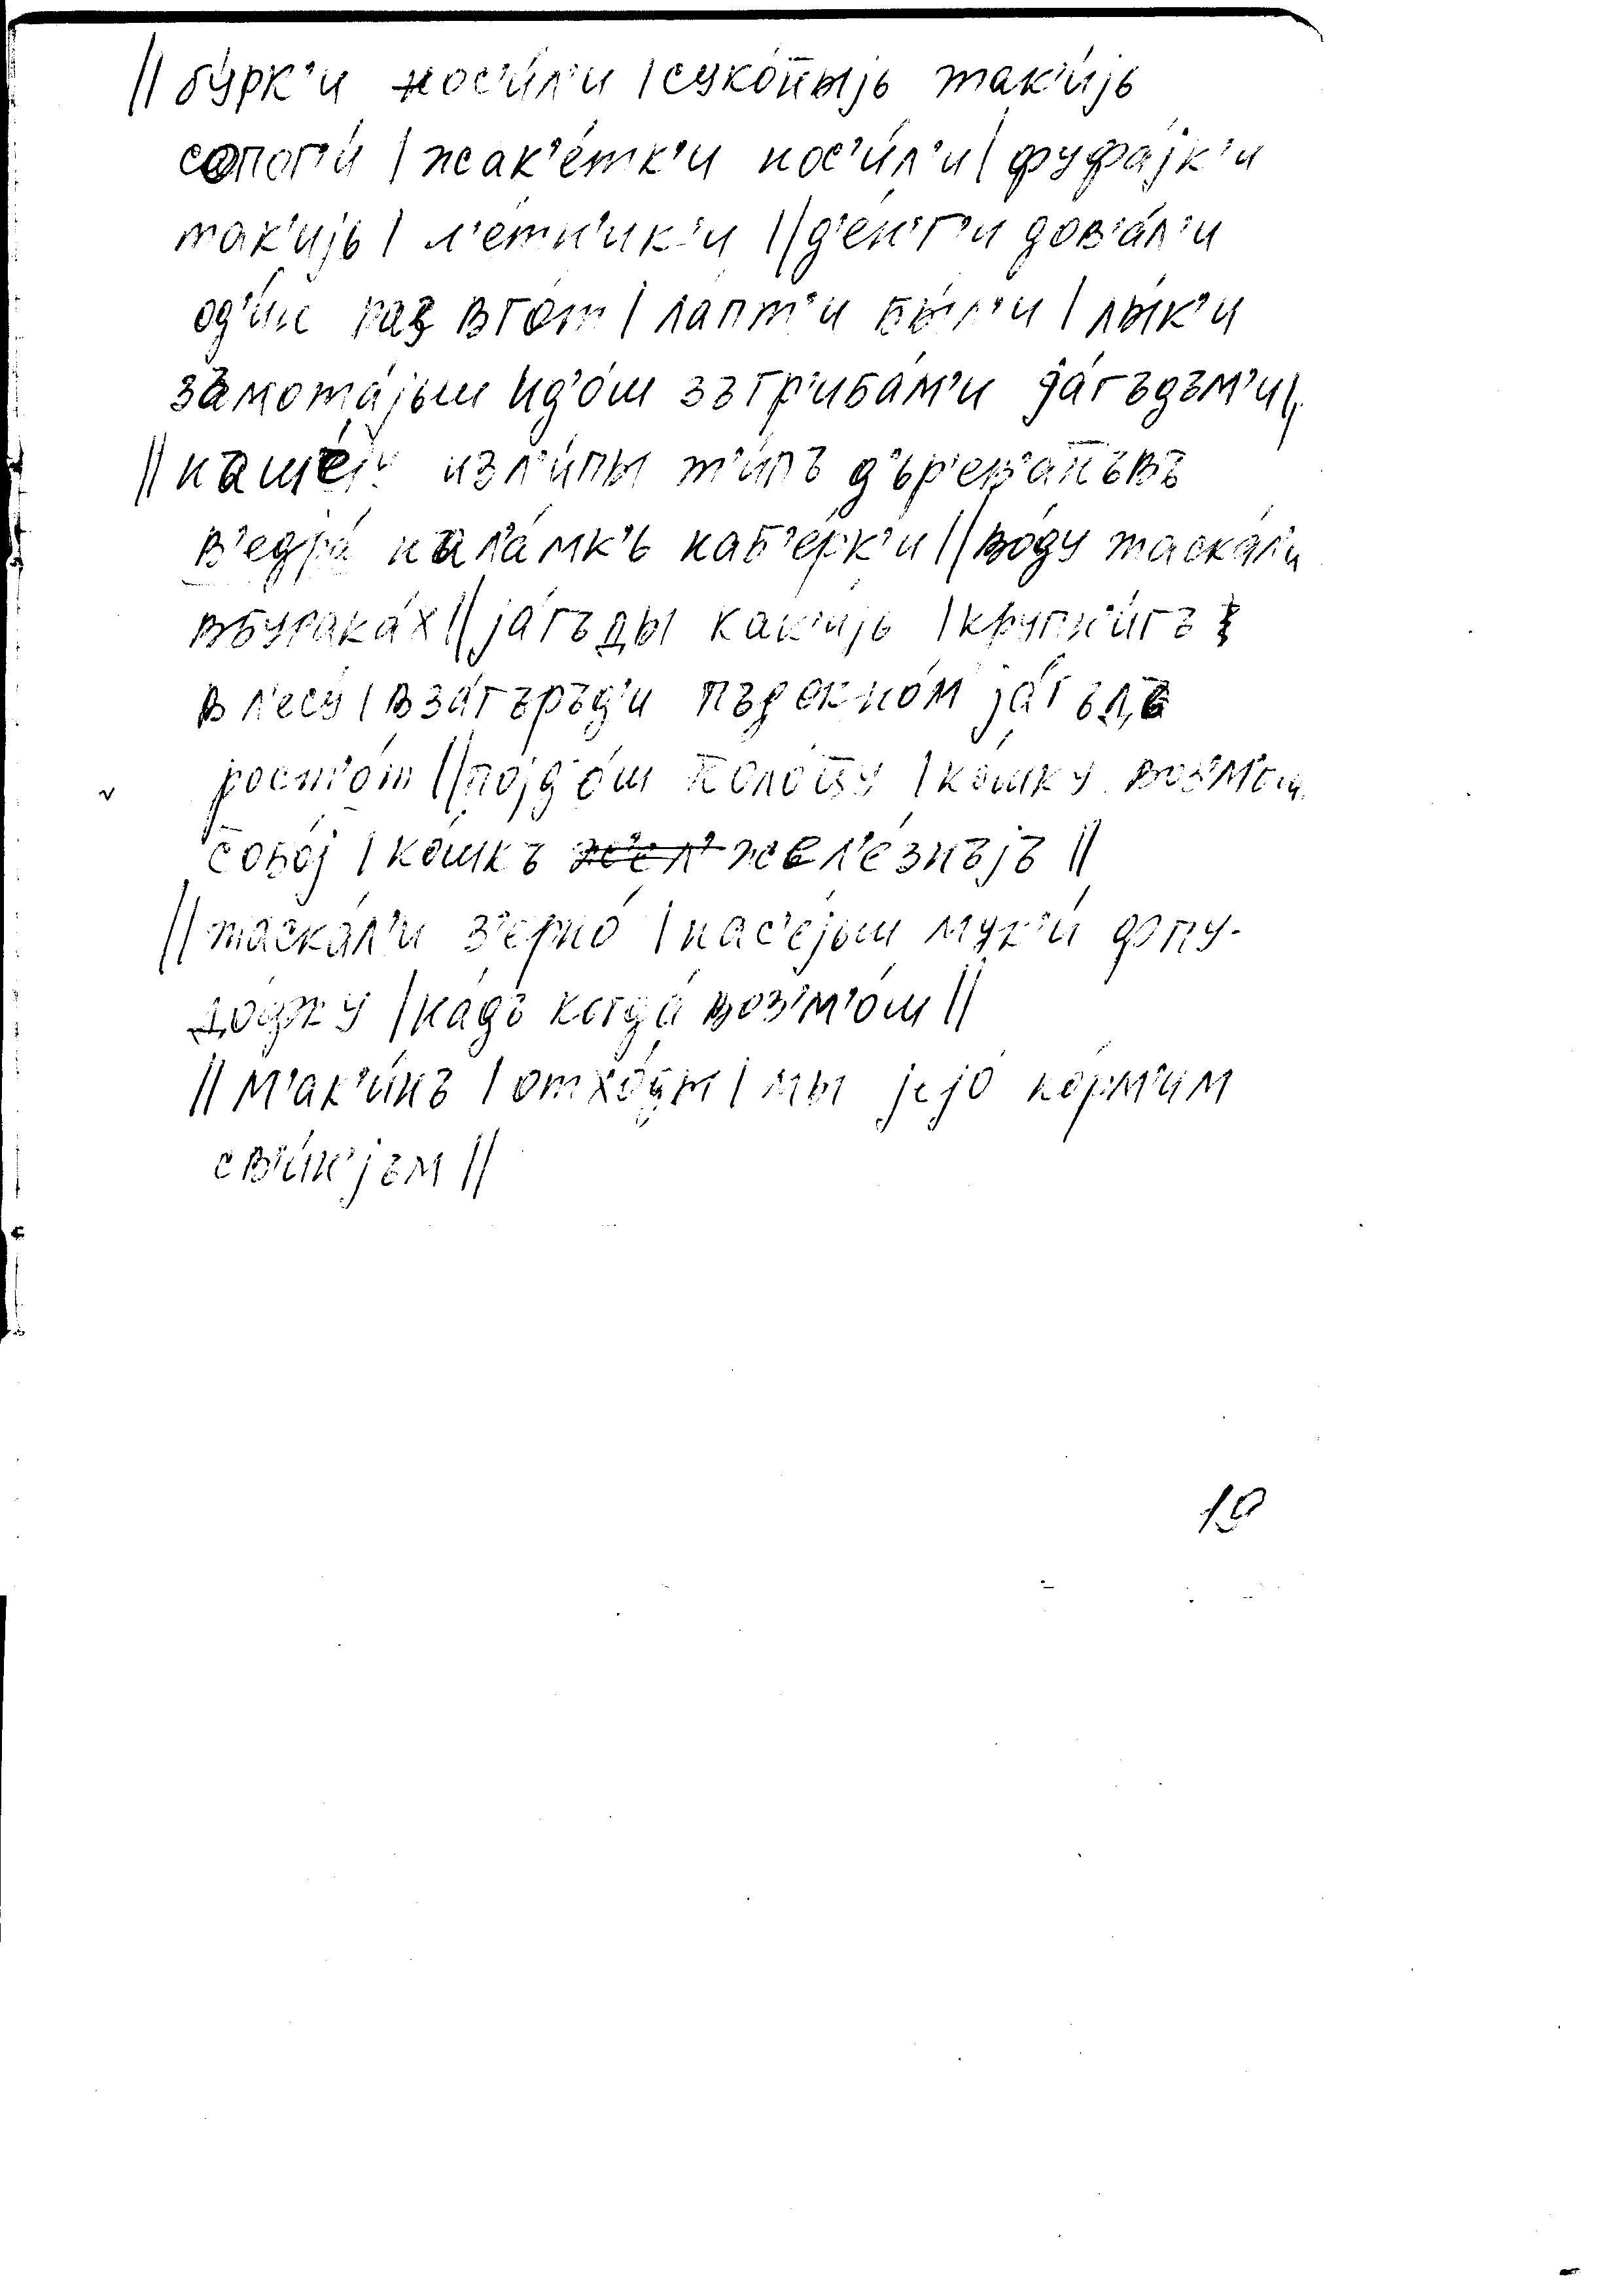 || бу́рк'и нос'и́л'и | суко́н̄ыjь так'и́jь
сапог'и́ | жак'е́тк'и нос'и́л'и | фуфа́jк'и
так'иjь | л'е́тн'ик'и || д'е́н'г'и дов'а́л'и
од'и́н раз вго́т | лапт'и бы́л'и | лы́к'и
замота́jыш ид'о́ш зъгр'иба́м'и jа́гъдъм'и |
|| нъ изл'и́пы т'и́пъ д'ър'ев'а́н̄ъвъ
в'едра́ нал'а́мк'ь наб'е́рк'и || во́ду таска́л'и
вбурака́х || jа́гъды как'иjь | крупн'и́гъ
в л'есу́ | вза́гъръд'и пъдокно́м jа́гъдъ
рост'о́т || поjд'о́ш кколо́цу | ко́шку воз'м'о́ш
с̄обо́j | ко́шкъ жел'е́знъjъ ||
|| таска́л'и з'ерно́ | нас'е́jьш мук'и́ фпу-
до́фку | на́дъ когда́ воз'м'о́ш ||
|| м'ак'и́нъ | отхо́ды | мы jejо́ ко́рм'им
св'и́н'jъм ||
19